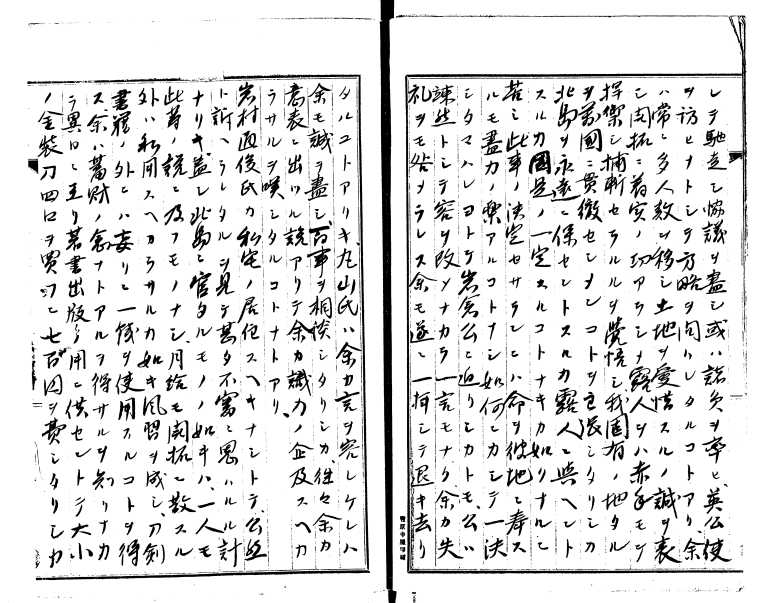 レテ馳走シ協議ヲ盡シ或ハ諸員ヲ率ヒ英公使
ヲ訪ヒナトシテ方略ヲ問ハレタルコトアリ余
ハ常ニ多人数ヲ移シ土地ヲ愛惜スルノ誠ヲ表
シ開拓ニ着実ノ功アラシメ露人ヲハ赤手モテ
捍禦シ捕斬セラルルヲ覚悟シ我固有ノ地タル
ヲ萬国ニ貫徹セシメンコトヲ主張シタリシカ
北島ヲ永遠ニ保セントスルカ露人ニ與ヘント
スルカ國是ノ一定スルコトナキカ如クナルニ
苦シ此事ノ決定セサランニハ命ヲ彼地ニ奉ス
ルモ盡力ノ Aルコトナシ如何ニカシテ一決
シタマハレヨトテ岩倉公ニ迫リシカトモ公ハ
竦然トシテ容ヲ改メナカラ一言モナク余カ失
礼ヲモ咎メラレス余モ遂ニ一揖シテ退キ去リ
タルコトアリキ丸山氏ハ余カ言ヲ容レケレハ
余モ誠ヲ盡シ百事ヲ相談シタリシカ往々余カ
意表ニ出ツル説アリテ余カ識力ノ企及スヘカ
ラサルヲ嘆シタルコトナトアリ
岩村通俊氏カ私宅ノ居住スヘキナシトテ公然
ト訴ヘラレタルヲ見テ甚タ不審ニ思ハルル計
ナリキ蓋シ北島ニ官タルモノノ如キハ一人モ
此等ノ説ニ及フモノナシ月給モ開拓ニ散スル
外ハ私用スヘカラサルカ如キ風習ヲ成シ刀剣
書籍ノ外ニハ妄リニ一銭ヲ使用スルコトヲ得
ス余ハ蓄財ノ念ナトアルヲ得サルヲ知リナカ
ラ異日ニ至リ著書出版ノ用ニ供セントテ大小
ノ金装刀四口ヲ買フニ七百円ヲ費シタリシカ